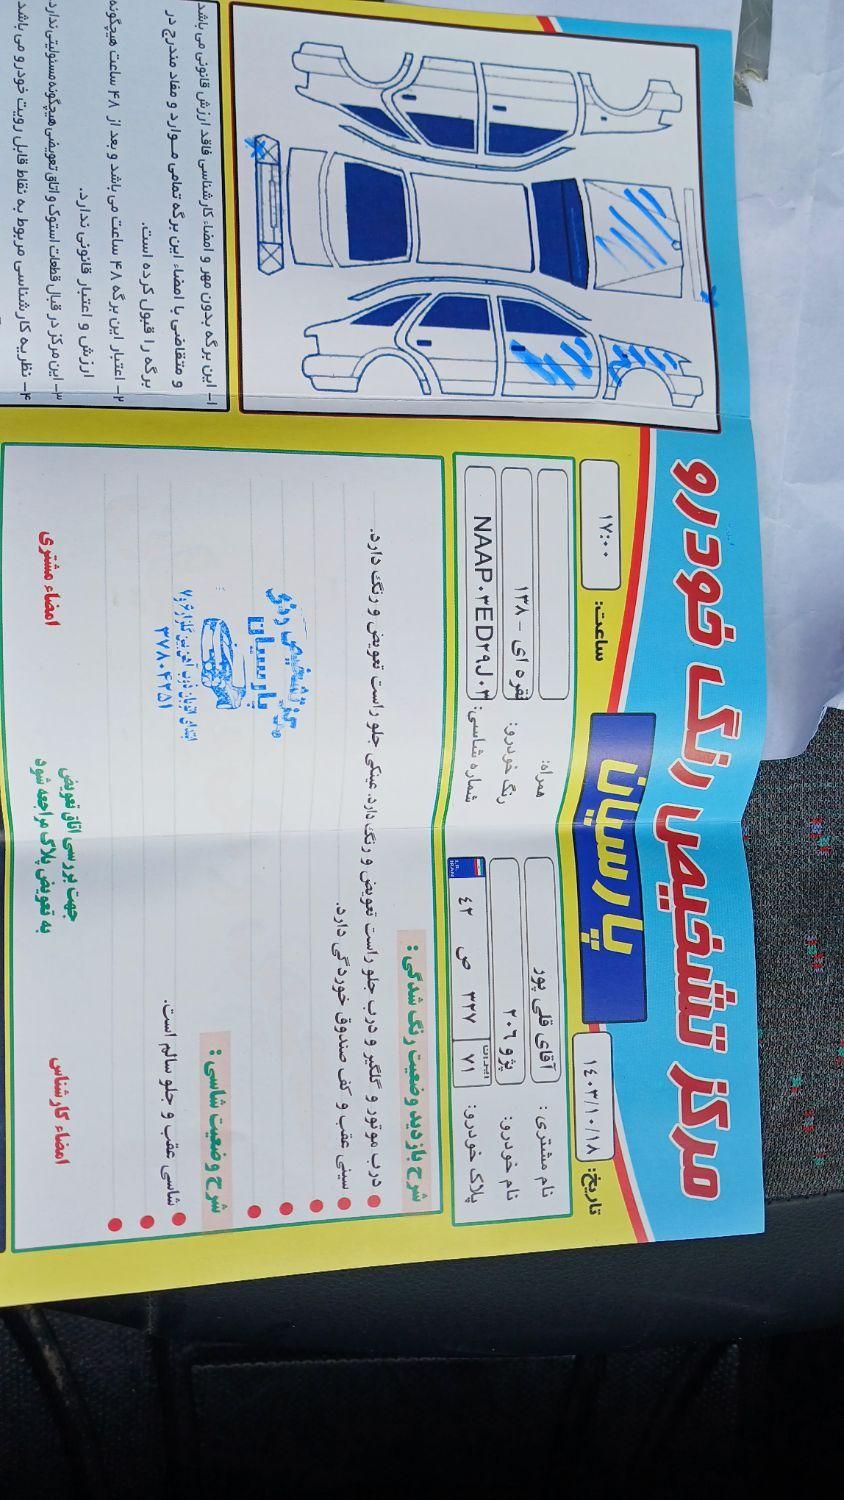 مرکز تشخیص رنگ خودرو
پارسیان
تاریخ: ۱۴۰۳/۱۰/۱۸
ساعت: ۱۷:۰۰
نام مشتری: آقای قلی پور
همراه:
نام خودرو: پژو ۲۰۶
رنگ خودرو: نقره ای - ۱۳۸
پلاک خودرو: ایران ۷۱ ۳۲۷ ص ۴۲
I.R. IRAN
شماره شاسی: NAAP۰۳ED۲۹J۰۳
شرح بازدید وضعیت رنگ شدگی:
درب موتور و گلگیر و درب جلو راست تعویض و رنگ دارد. عینکی جلو راست تعویض و رنگ دارد.
سینی عقب و کف صندوق خوردگی دارد.
شرح وضعیت شاسی:
شاسی عقب و جلو سالم است.
مرکز تشخیص رنگ
پارسیان
۳۷۸۰۴۲۵۱
جهت بررسی اتاق تعویض
به تعویض پلاک مراجعه شود
امضاء کارشناس
امضاء مشتری
۱- این برگه بدون مهر و امضاء کارشناسی فاقد ارزش قانونی می باشد
و متقاضی با امضاء این برگه تمامی موارد و مفاد مندرج در
برگه را قبول کرده است.
۲- اعتبار این برگه ۴۸ ساعت می باشد و بعد از ۴۸ ساعت هیچگونه
ارزش و اعتبار قانونی ندارد.
۳- این مرکز در قبال قطعات استوک و اتاق تعویضی هیچگونه مسئولیتی ندارد
۴- نظریه کارشناسی مربوط به نقاط قابل رویت خودرو می باشد